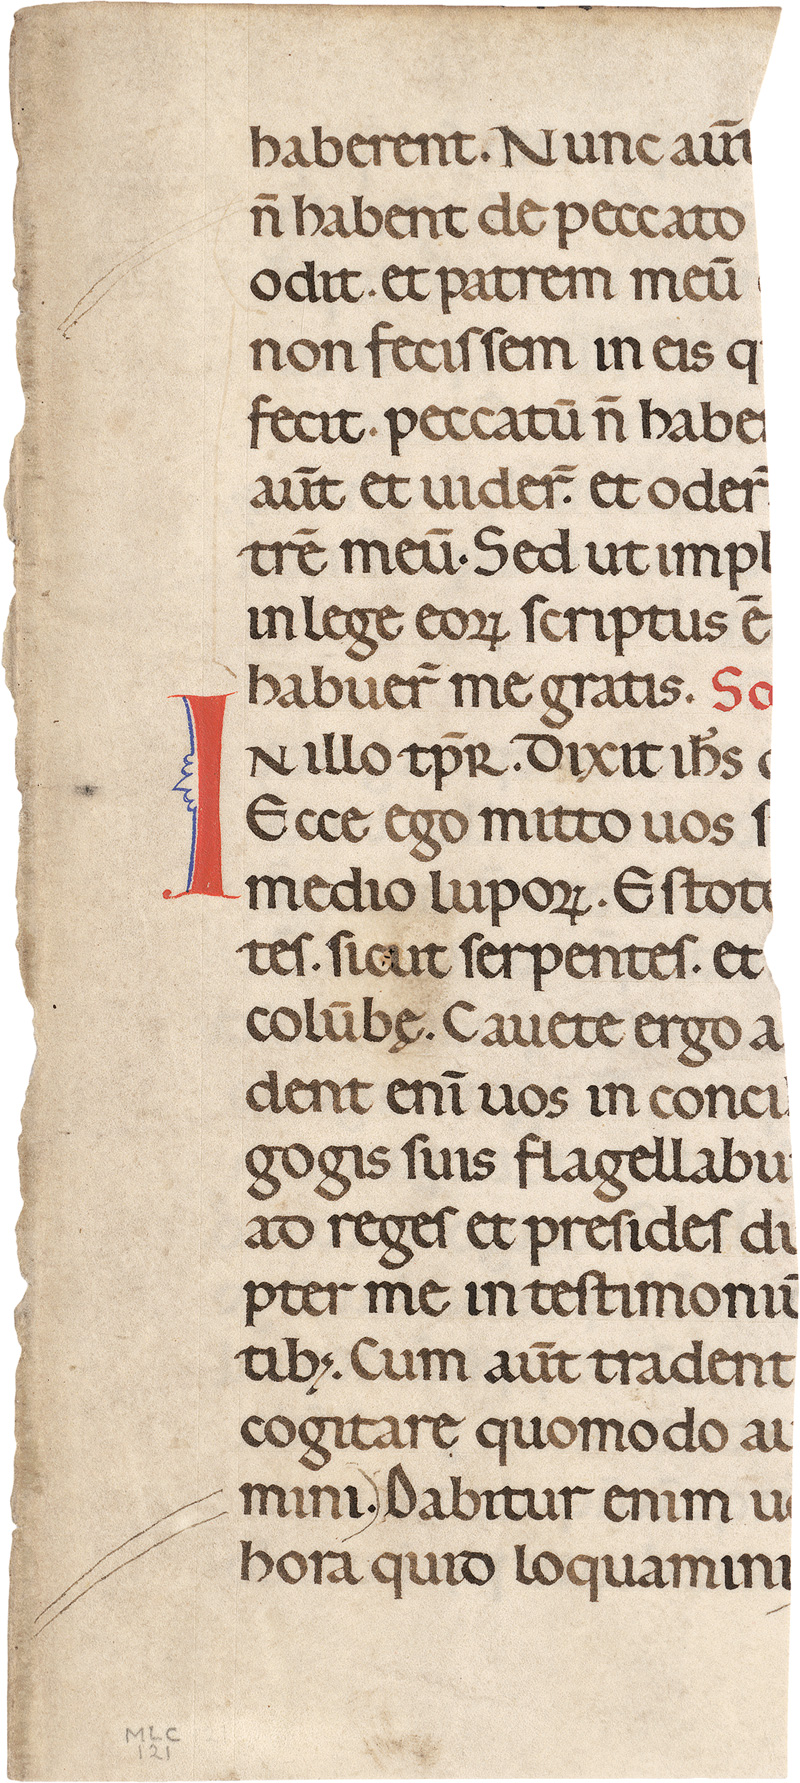 haberent. Nunc aūt
n̄ habent de peccato
odit. et patrem meū
non feciſſem in eis q
fecit. peccatū n̄ habe
aūt et uider̄. et oder̄
trē meū. Sed ut impl
in lege eoꝝ ſcriptus ē
habuer̄ me gratis. Sc
IN illo tp̄R. Dixit ih̄s
Ecce ego mitto uos ſ
medio lupoꝝ. Eſtote
teſ. ſicut ſerpenteſ. et
colūbę. Cauete ergo a
dent enī uos in conci
gogis ſuis flagellabu
ad regeſ et preſideſ du
pter me in teſtimoniū
tibꝫ. Cum aūt tradent
cogitare quomodo au
mini. Dabitur enim uo
hora quid loquamini
MLC
121